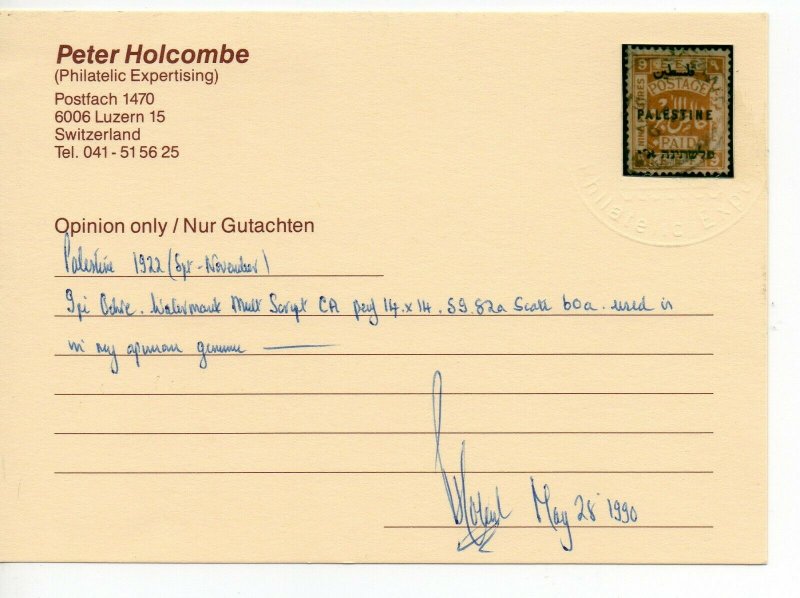 Peter Holcombe
(Philatelic Expertising)
Postfach 1470
6006 Luzern 15
Switzerland
Tel. 041-51 56 25
فلسطين
POSTAGE
PALESTINE
PAID
פלשתינה א״י
Philatelic Exp
Opinion only / Nur Gutachten
Palestine 1922 (Spt-November)
9pi Ochre. Watermark Mult Script CA perf 14.x14. SG.82a Scott 60a. used is
in my opinion genuine
May 28 1990